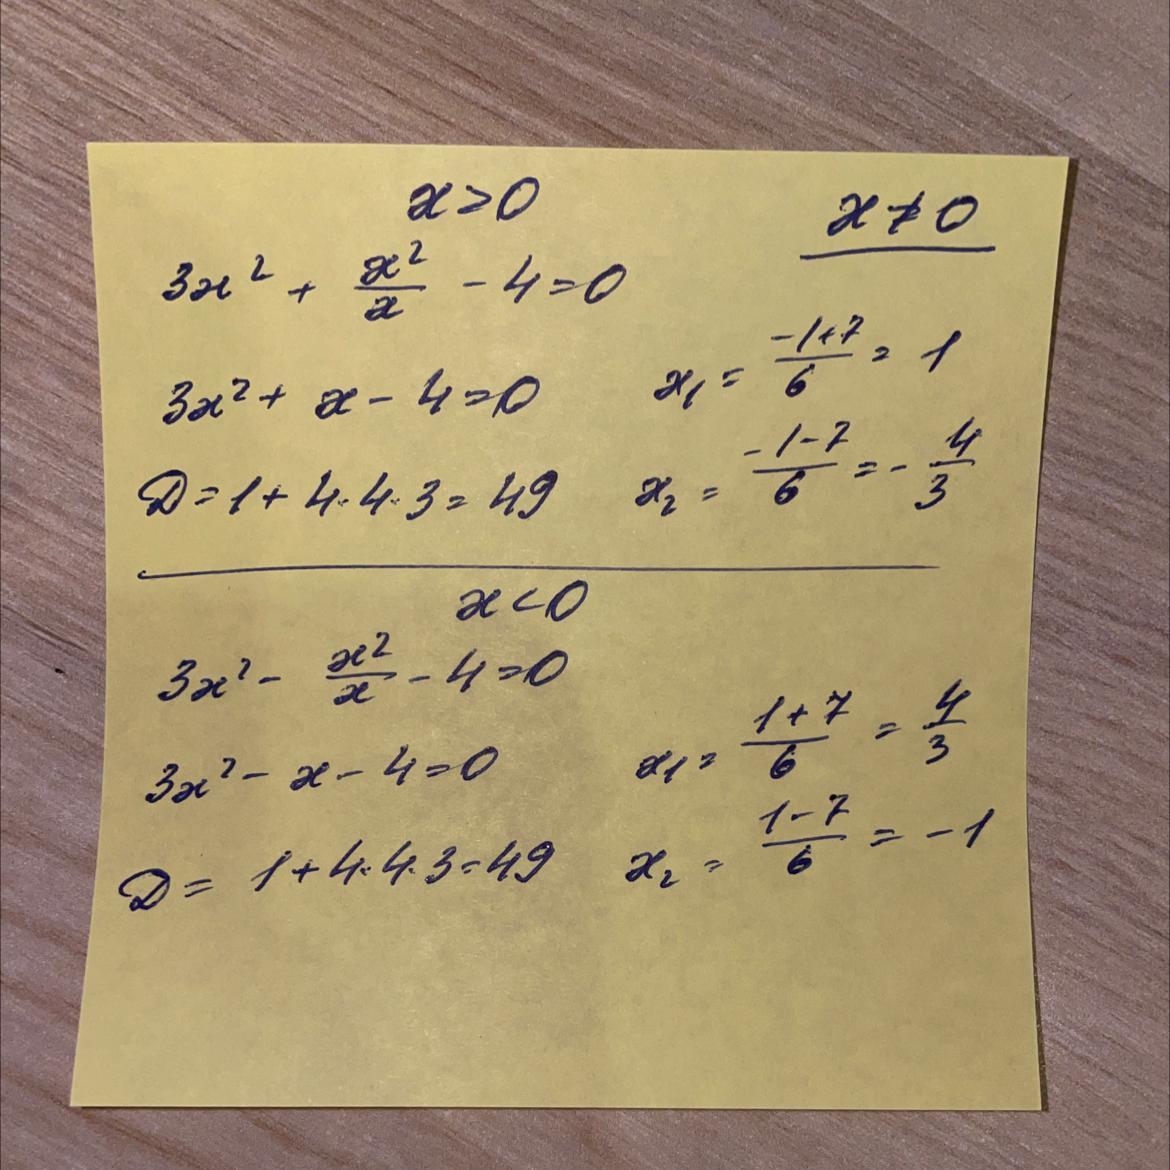 x>0
x≠0
3x² + x²/x - 4=0
3x²+ x - 4=0
x₁ = (-1+7)/6 = 1
D=1+ 4·4·3= 49
x₂ = (-1-7)/6 = -4/3
x<0
3x² - x²/x - 4=0
3x² - x - 4=0
x₁= (1+7)/6 = 4/3
D= 1+4·4·3=49
x₂ = (1-7)/6 = -1